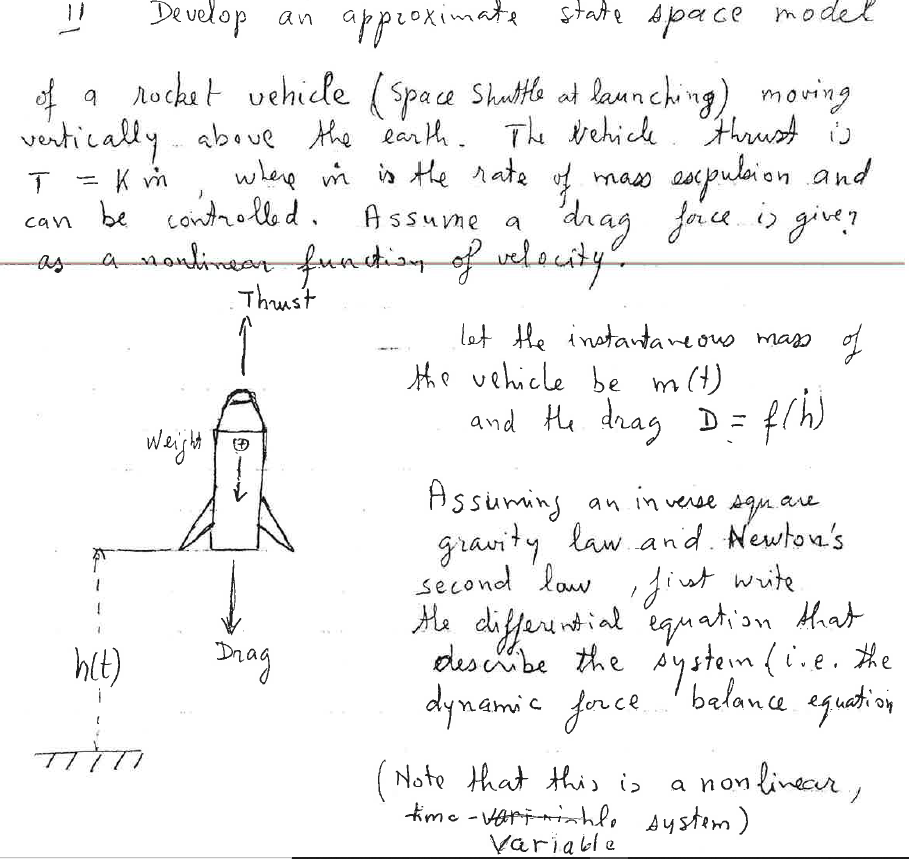 1) Develop an approximate state space model
of a rocket vehicle (space shuttle at launching) moving
vertically above the earth. The vehicle thrust is
T = K ṁ , where ṁ is the rate of mass expulsion and
can be controlled. Assume a drag force is given
as a nonlinear function of velocity.
Thrust
Weight
Drag
h(t)
let the instantaneous mass of
the vehicle be m(t)
and the drag D = f(ḣ)
Assuming an inverse square
gravity law and Newton's
second law , first write
the differential equation that
describe the system (i.e. the
dynamic force balance equation
(Note that this is a nonlinear,
time - system)
Variable